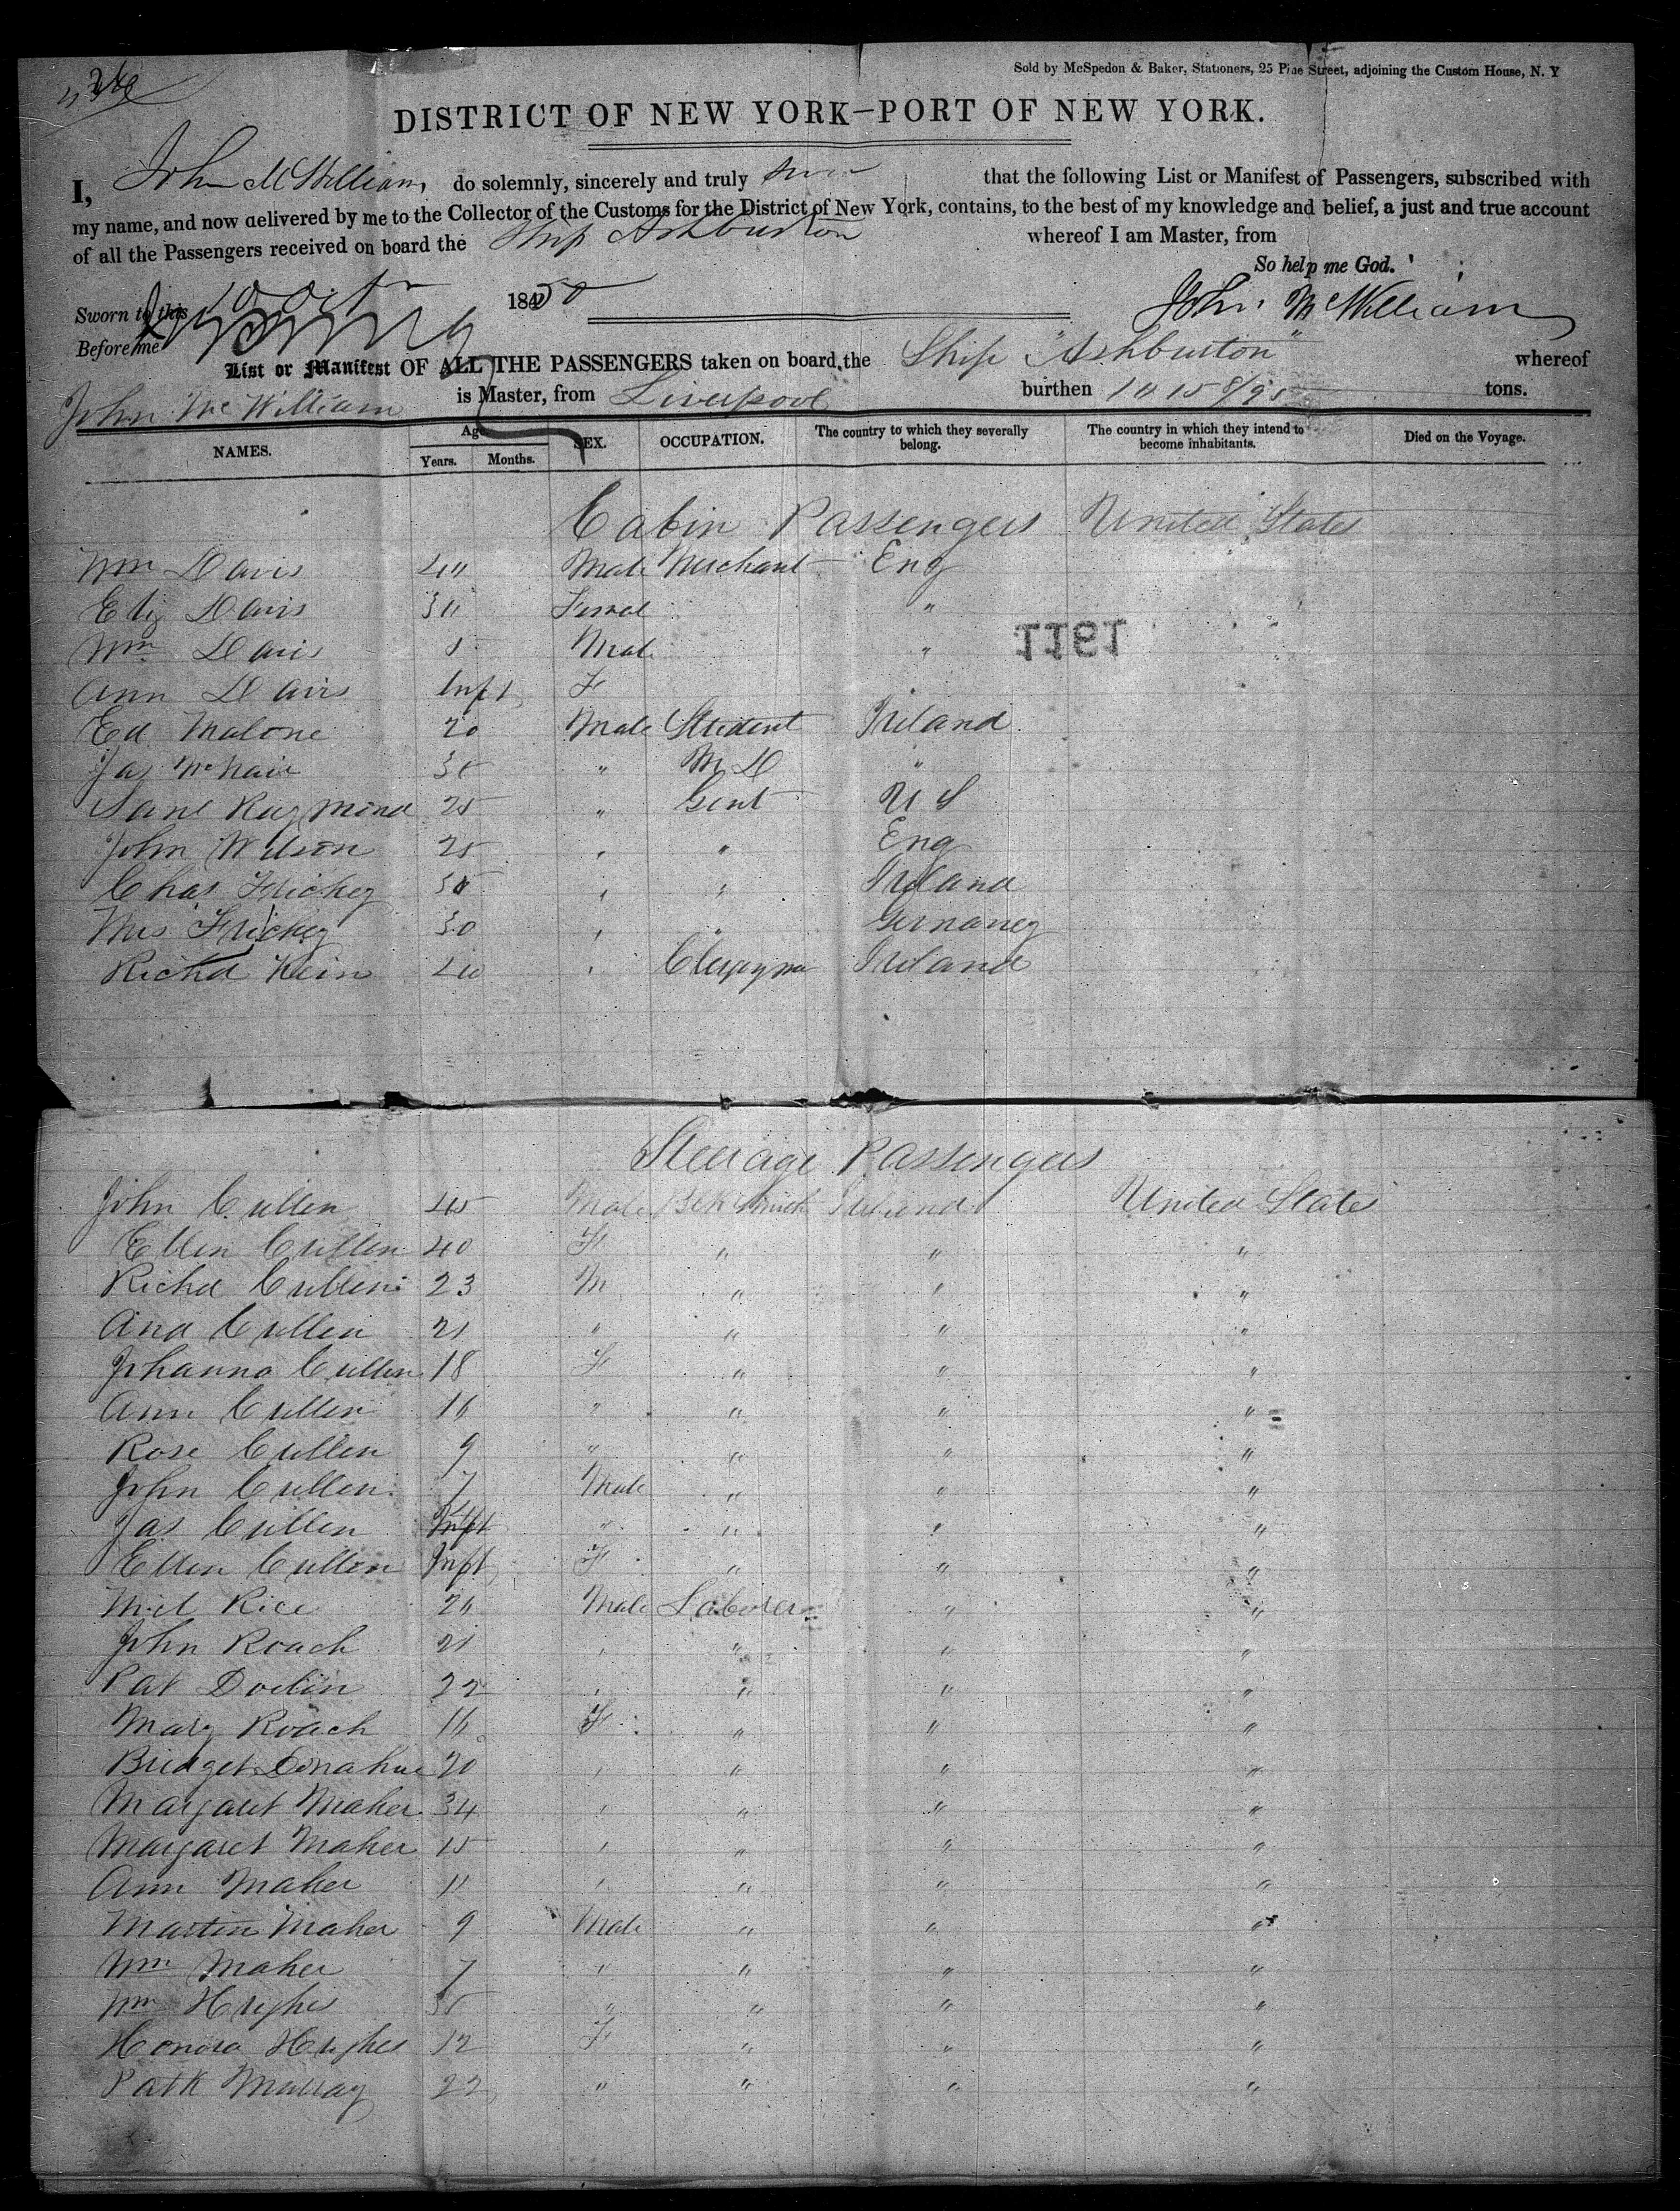 Sold by McSpedon & Baker, Stationers, 25 Pine Street, adjoining the Custom House, N. Y
DISTRICT OF NEW YORK—PORT OF NEW YORK.
I, John McWilliam, do solemnly, sincerely and truly that the following List or Manifest of Passengers, subscribed with
my name, and now delivered by me to the Collector of the Customs for the District of New York, contains, to the best of my knowledge and belief, a just and true account
of all the Passengers received on board the Ship Ashburton whereof I am Master, from
So help me God.
Sworn to this 10 Oct 1850 John McWilliam
Before me
List or Manifest OF ALL THE PASSENGERS taken on board the Ship "Ashburton" whereof
John McWilliam is Master, from Liverpool burthen 1015 8/95 tons.
NAMES. Age Years. Months. SEX. OCCUPATION. The country to which they severally belong. The country in which they intend to become inhabitants. Died on the Voyage.
Cabin Passengers United States
Wm Davis Male Merchant Eng
Eliz Davis Femal "
Wm Davis Male "
1161
Ann Davis Inft F
Ed Malone 20 Male Student Ireland
Jas McNair " M D "
Saml Raymond 25 " Gent U S
John Wilson 25 " " Eng
Chas Frickey " " Ireland
Mrs Frickey 30 " " Germaney
Richd Kein 40 " Clergyma Ireland
Steerage Passengers
John Cullen 45 Male Blk Smith Ireland United States
Ellen Cullen 40 F " " "
Richd Cullen 23 M " " "
And Cullen 21 " " " "
Johanna Cullen 18 F " " "
Ann Cullen 16 " " " "
Rose Cullen 9 " " " "
John Cullen 7 Male " " "
Jas Cullen Inft " " " "
Ellen Cullen Inft F " " "
Mil Rice Male Laborer " "
John Roach 21 " " " "
Pat Doolin 22 " " " "
Mary Roach 16 F " " "
Bridget Donahue 20 " " " "
Margaret Maher 34 " " " "
Margaret Maher 15 " " " "
Ann Maher 11 " " " "
Martin Maher 9 Male " " "
Wm Maher 7 " " " "
Wm Hughes 35 " " " "
Honora Hughes 12 F " " "
Patk Murray 22 " " " "